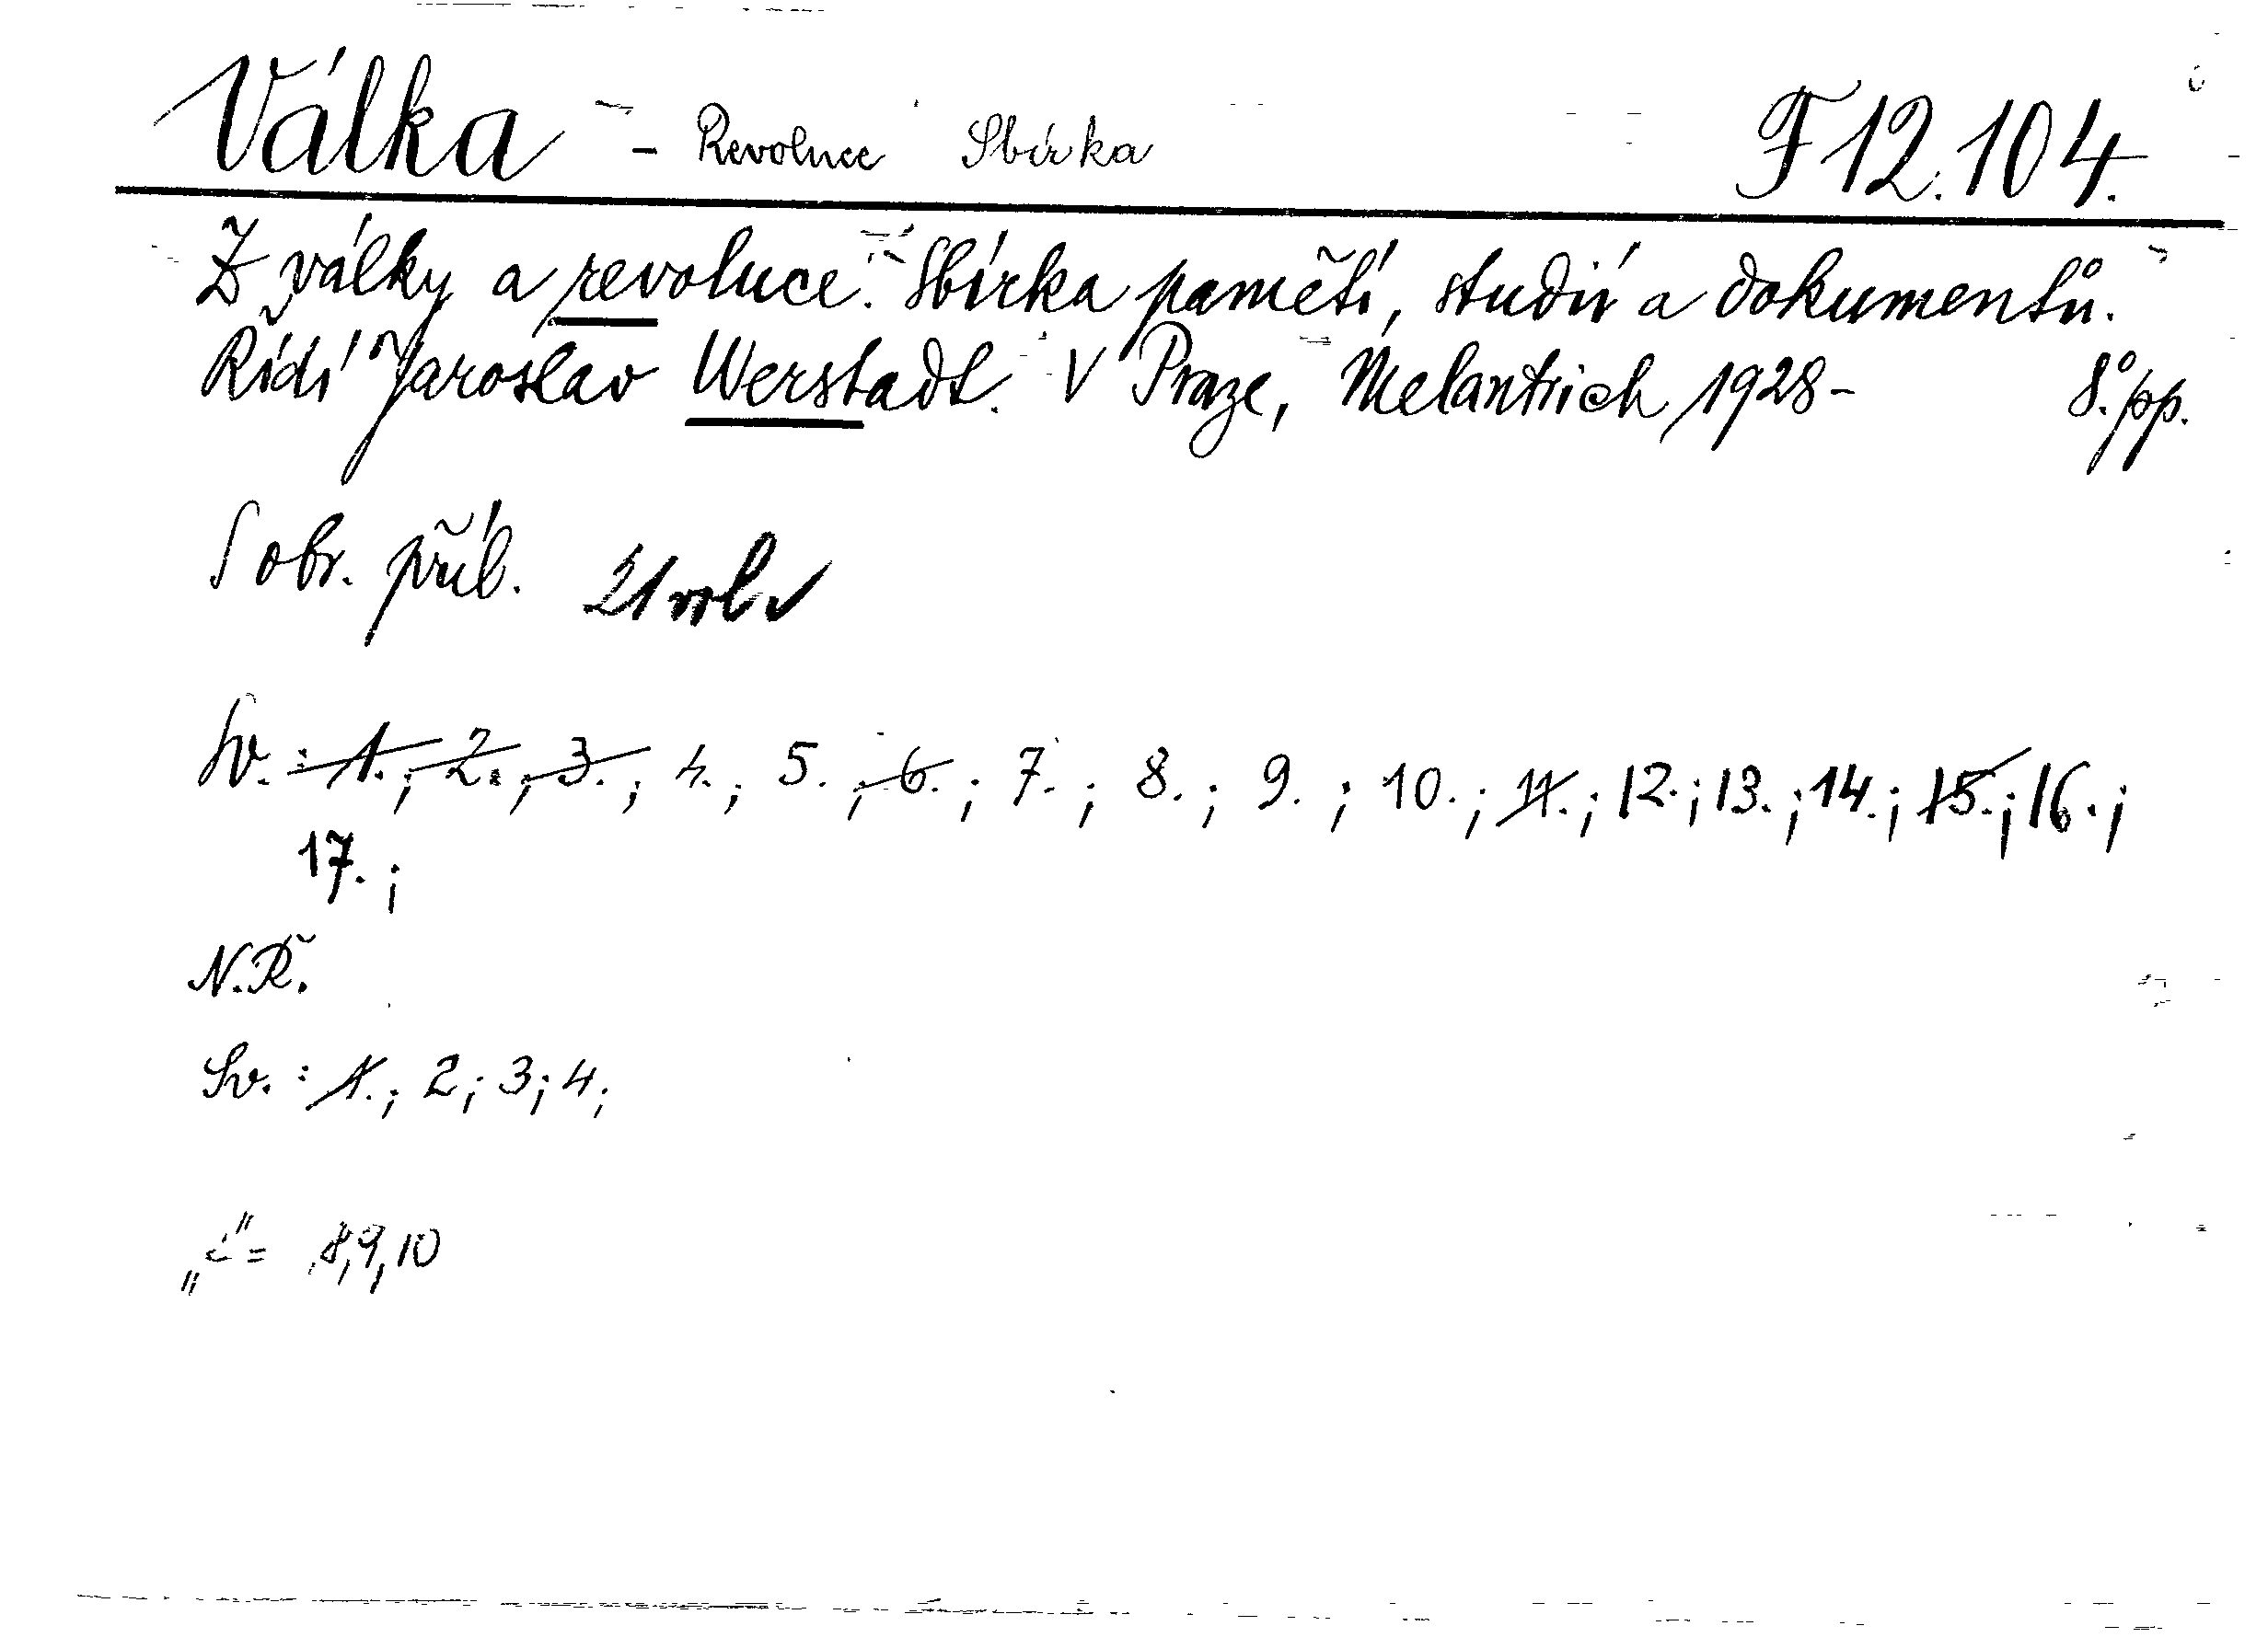 Válka - Revoluce Sbírka F 12.104.
Z války a revoluce. Sbírka pamětí, studií a dokumentů.
Řídí Jaroslav Werstadt. V Praze, Melantrich 1928- 8° pp.
S obr. příl. 21 vol
Sv.: 1.; 2.; 3.; 4.; 5.; 6.; 7.; 8.; 9.; 10.; 11.; 12.; 13.; 14.; 15.; 16.;
17.;
N.Ř.
Sv.: 1.; 2; 3; 4;
= 8, 9, 10